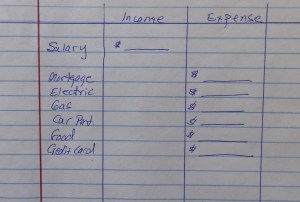 Income Expense
Salary $ ______
Mortgage $ ______
Electric $ ______
Gas $ ______
Car Pmt. $ ______
Food $ ______
Credit Card $ ______